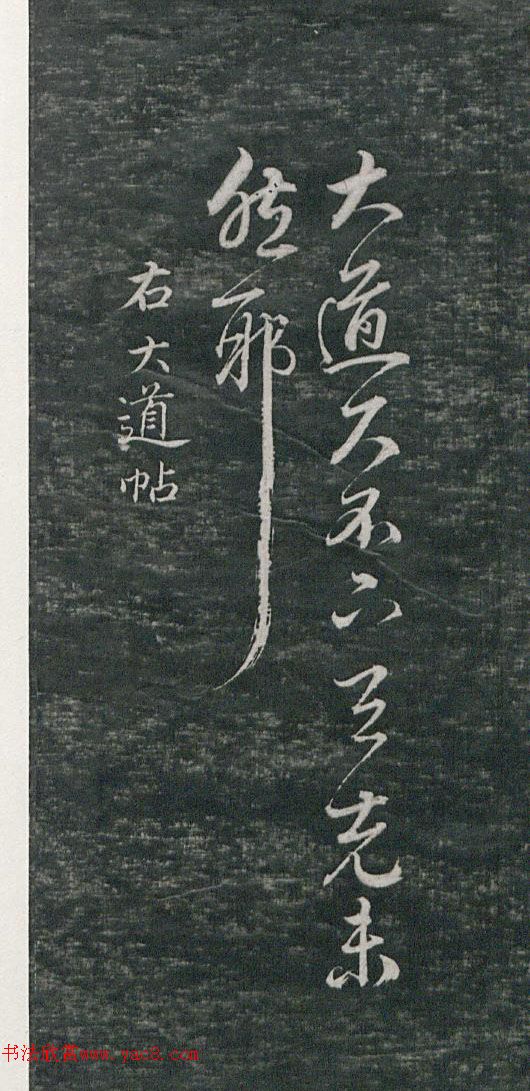 大道久不下与先未
然耶
右大道帖
书法欣赏www.yac8.com